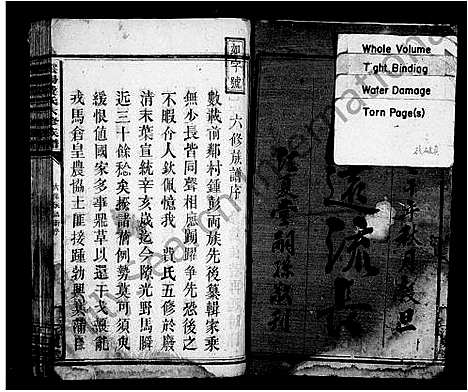 Whole Volume
Tight Binding
Water Damage
Torn Page(s)
如字號
六修族譜序
數載前鄰村鍾彭兩族先後纂輯家乘
無少長皆同聲相應踴躍爭先恐後之
不暇令人欽佩憶我 氏五修於殿
清末葉宣統辛亥歲迄今隙光野馬瞬
近三十餘稔矣揆諸情例勢莫可須臾
緩恨值國家多事鼎革以還干戈
戎馬倉皇農協土匪接踵勃興
遠流長
堂嗣孫敬刊
年秋月
旦